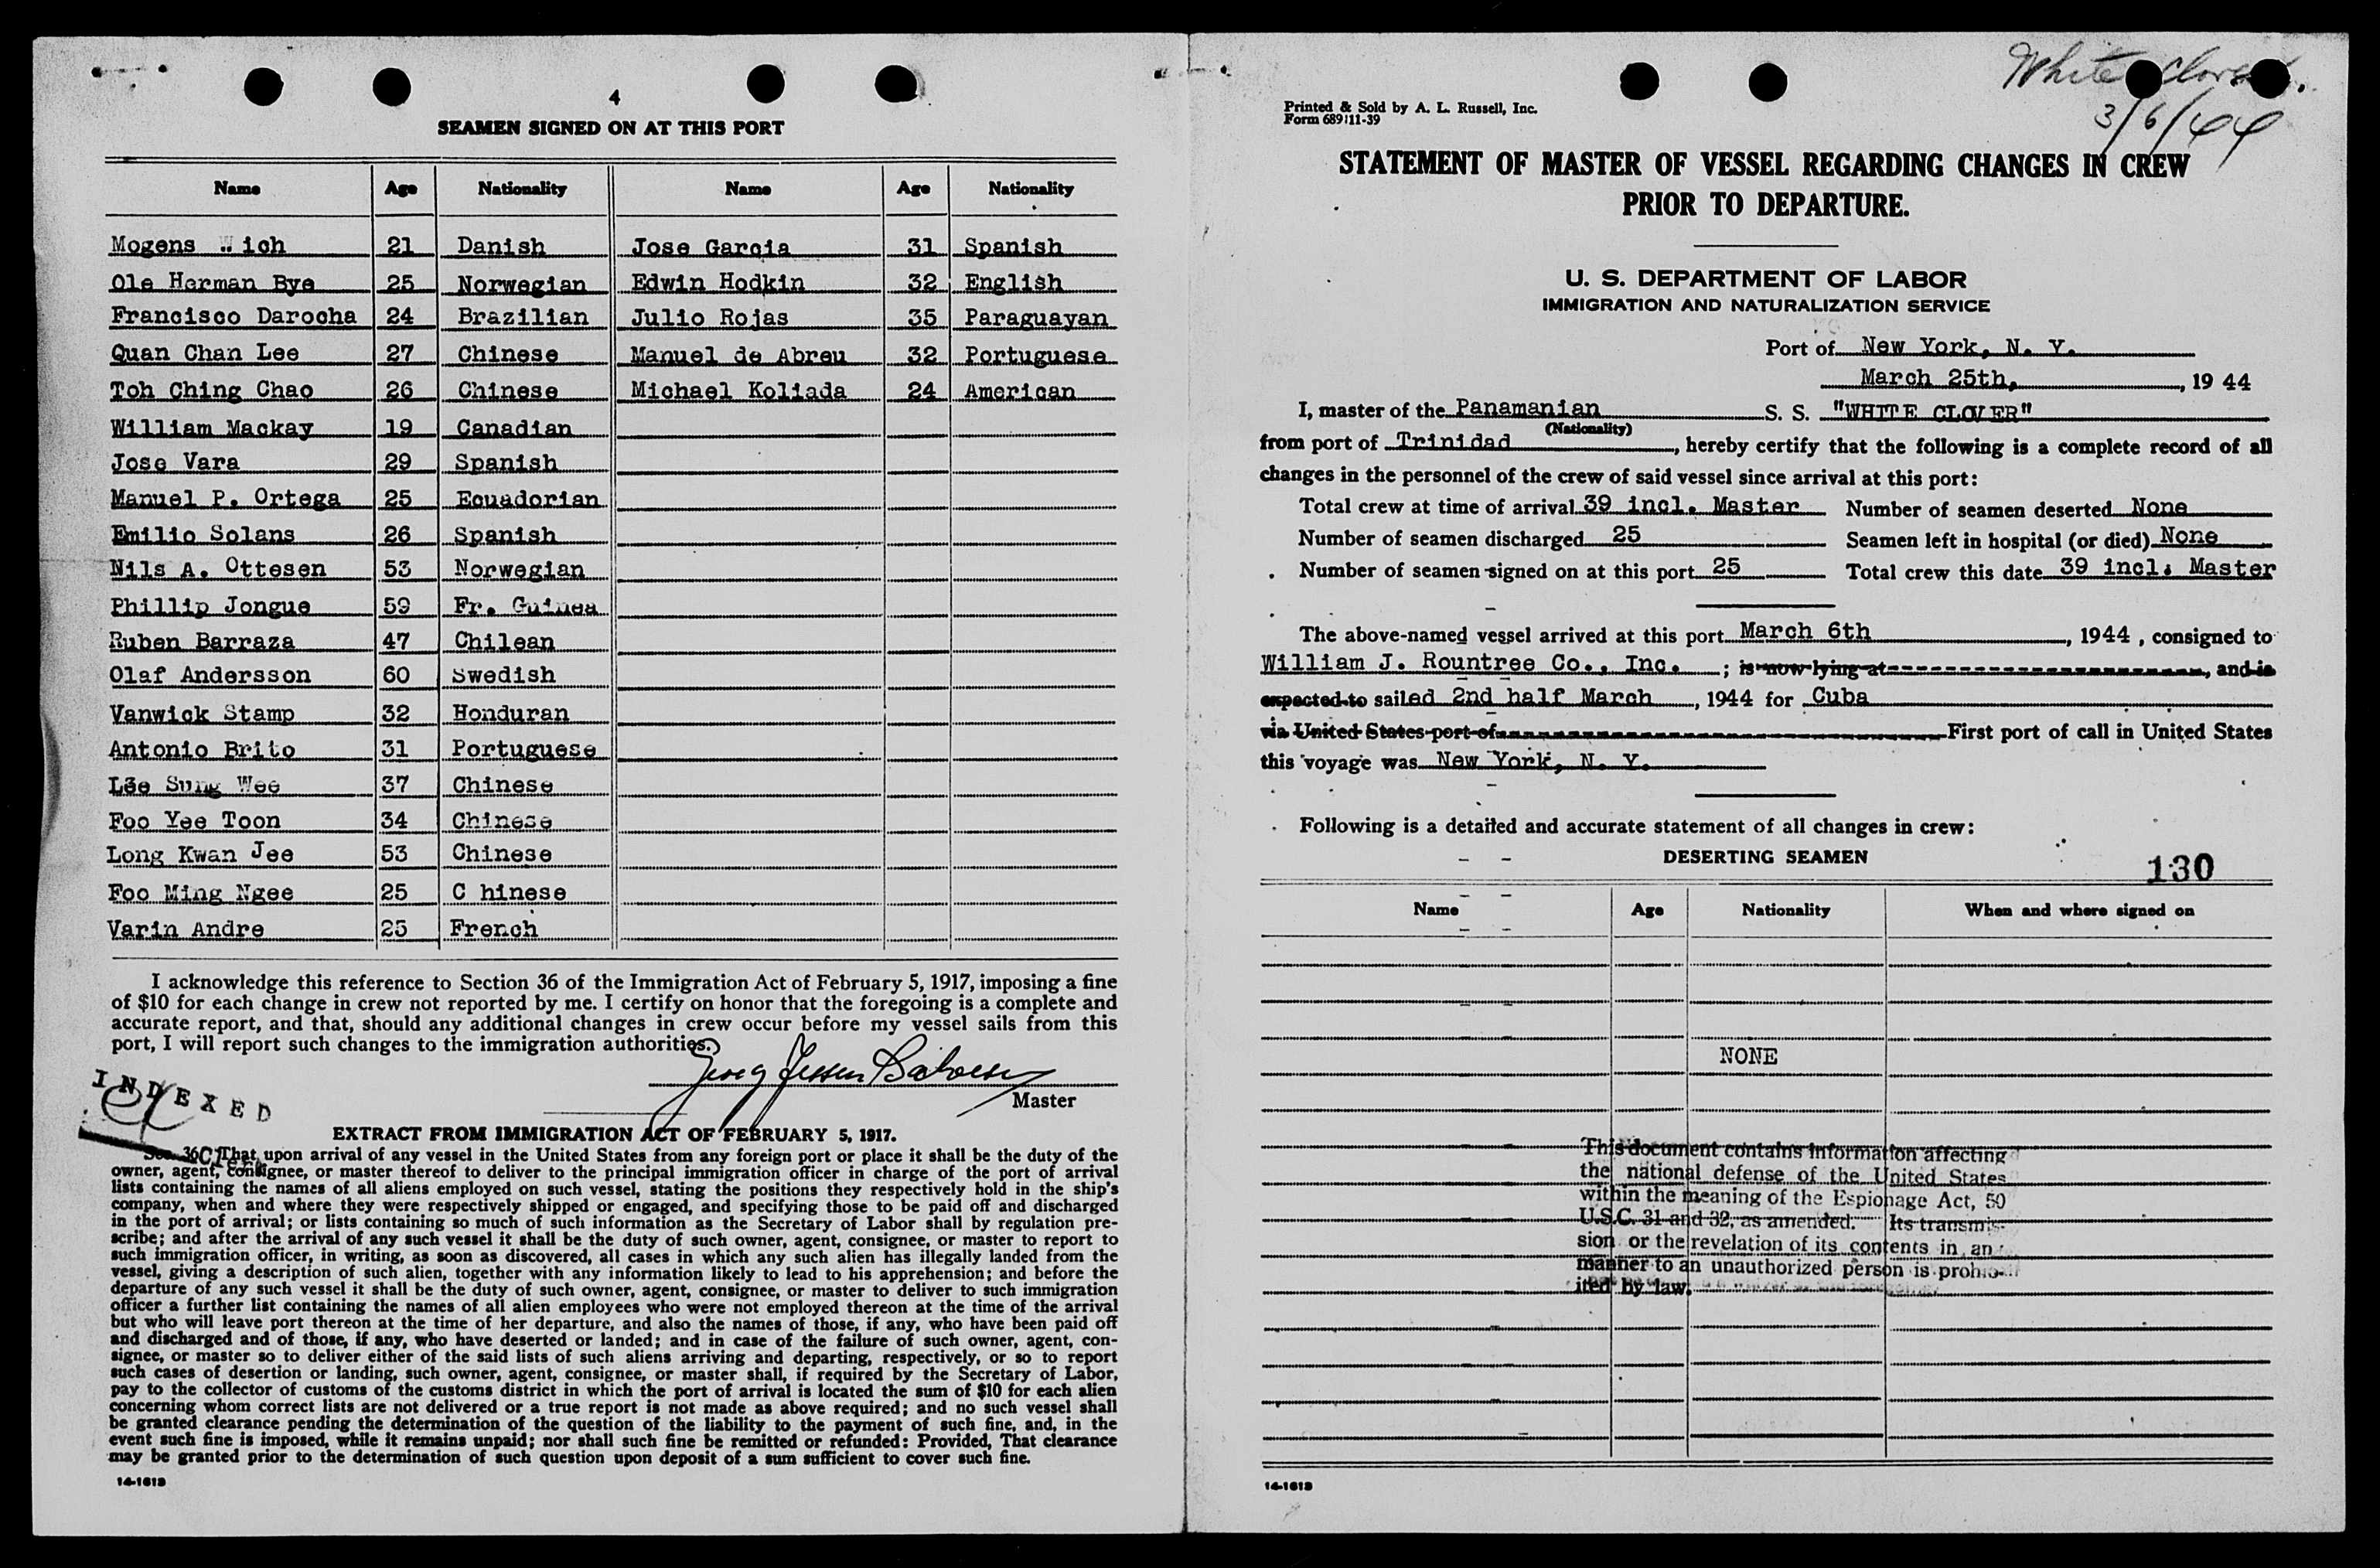 4
SEAMEN SIGNED ON AT THIS PORT
Name Age Nationality Name Age Nationality
Mogens ich 21 Danish Jose Garcia 31 Spanish
Ole Herman Bye 25 Norwegian Edwin Hodkin 32 English
Francisco Darocha 24 Brazilian Julio Rojas 35 Paraguayan
Quan Chan Lee 27 Chinese Manuel de Abreu 32 Portuguese
Toh Ching Chao 26 Chinese Michael Koliada 24 American
William Mackay 19 Canadian
Jose Vara 29 Spanish
Manuel P. Ortega 25 Ecuadorian
Emilio Solans 26 Spanish
Nils A. Ottesen 53 Norwegian
Phillip Jongue 59 Fr. Guinea
Ruben Barraza 47 Chilean
Olaf Andersson 60 Swedish
Vanwick Stamp 32 Honduran
Antonio Brito 31 Portuguese
Lee Sung Wee 37 Chinese
Foo Yee Toon 34 Chinese
Long Kwan Jee 53 Chinese
Foo Ming Ngee 25 C hinese
Varin Andre 25 French
I acknowledge this reference to Section 36 of the Immigration Act of February 5, 1917, imposing a fine
of $10 for each change in crew not reported by me. I certify on honor that the foregoing is a complete and
accurate report, and that, should any additional changes in crew occur before my vessel sails from this
port, I will report such changes to the immigration authorities.
Master
INDEXED
Clerk
EXTRACT FROM IMMIGRATION ACT OF FEBRUARY 5, 1917.
Sec. 36. That upon arrival of any vessel in the United States from any foreign port or place it shall be the duty of the
owner, agent, consignee, or master thereof to deliver to the principal immigration officer in charge of the port of arrival
lists containing the names of all aliens employed on such vessel, stating the positions they respectively hold in the ship's
company, when and where they were respectively shipped or engaged, and specifying those to be paid off and discharged
in the port of arrival; or lists containing so much of such information as the Secretary of Labor shall by regulation pre-
scribe; and after the arrival of any such vessel it shall be the duty of such owner, agent, consignee, or master to report to
such immigration officer, in writing, as soon as discovered, all cases in which any such alien has illegally landed from the
vessel, giving a description of such alien, together with any information likely to lead to his apprehension; and before the
departure of any such vessel it shall be the duty of such owner, agent, consignee, or master to deliver to such immigration
officer a further list containing the names of all alien employees who were not employed thereon at the time of the arrival
but who will leave port thereon at the time of her departure, and also the names of those, if any, who have been paid off
and discharged and of those, if any, who have deserted or landed; and in case of the failure of such owner, agent, con-
signee, or master so to deliver either of the said lists of such aliens arriving and departing, respectively, or so to report
such cases of desertion or landing, such owner, agent, consignee, or master shall, if required by the Secretary of Labor,
pay to the collector of customs of the customs district in which the port of arrival is located the sum of $10 for each alien
concerning whom correct lists are not delivered or a true report is not made as above required; and no such vessel shall
be granted clearance pending the determination of the question of the liability to the payment of such fine, and, in the
event such fine is imposed, while it remains unpaid; nor shall such fine be remitted or refunded: Provided, That clearance
may be granted prior to the determination of such question upon deposit of a sum sufficient to cover such fine.
14-1613
White Clover
3/6/44
Printed & Sold by A. L. Russell, Inc.
Form 689 11-39
STATEMENT OF MASTER OF VESSEL REGARDING CHANGES IN CREW
PRIOR TO DEPARTURE.
U. S. DEPARTMENT OF LABOR
IMMIGRATION AND NATURALIZATION SERVICE
Port of New York, N. Y.
March 25th, , 19 44
I, master of the Panamanian S. S. "WHITE CLOVER"
(Nationality)
from port of Trinidad , hereby certify that the following is a complete record of all
changes in the personnel of the crew of said vessel since arrival at this port:
Total crew at time of arrival 39 incl. Master Number of seamen deserted None
Number of seamen discharged 25 Seamen left in hospital (or died) None
Number of seamen signed on at this port 25 Total crew this date 39 incl. Master
The above-named vessel arrived at this port March 6th , 1944 , consigned to
William J. Rountree Co., Inc. ; is now lying at , and is
expected to sailed 2nd half March , 1944 for Cuba
via United States port of First port of call in United States
this voyage was New York, N. Y.
Following is a detailed and accurate statement of all changes in crew:
DESERTING SEAMEN
130
Name Age Nationality When and where signed on
NONE
This document contains information affecting
the national defense of the United States
within the meaning of the Espionage Act, 50
U.S.C. 31 and 32, as amended. Its transmis-
sion or the revelation of its contents in an
manner to an unauthorized person is prohib-
ited by law.
14-1613